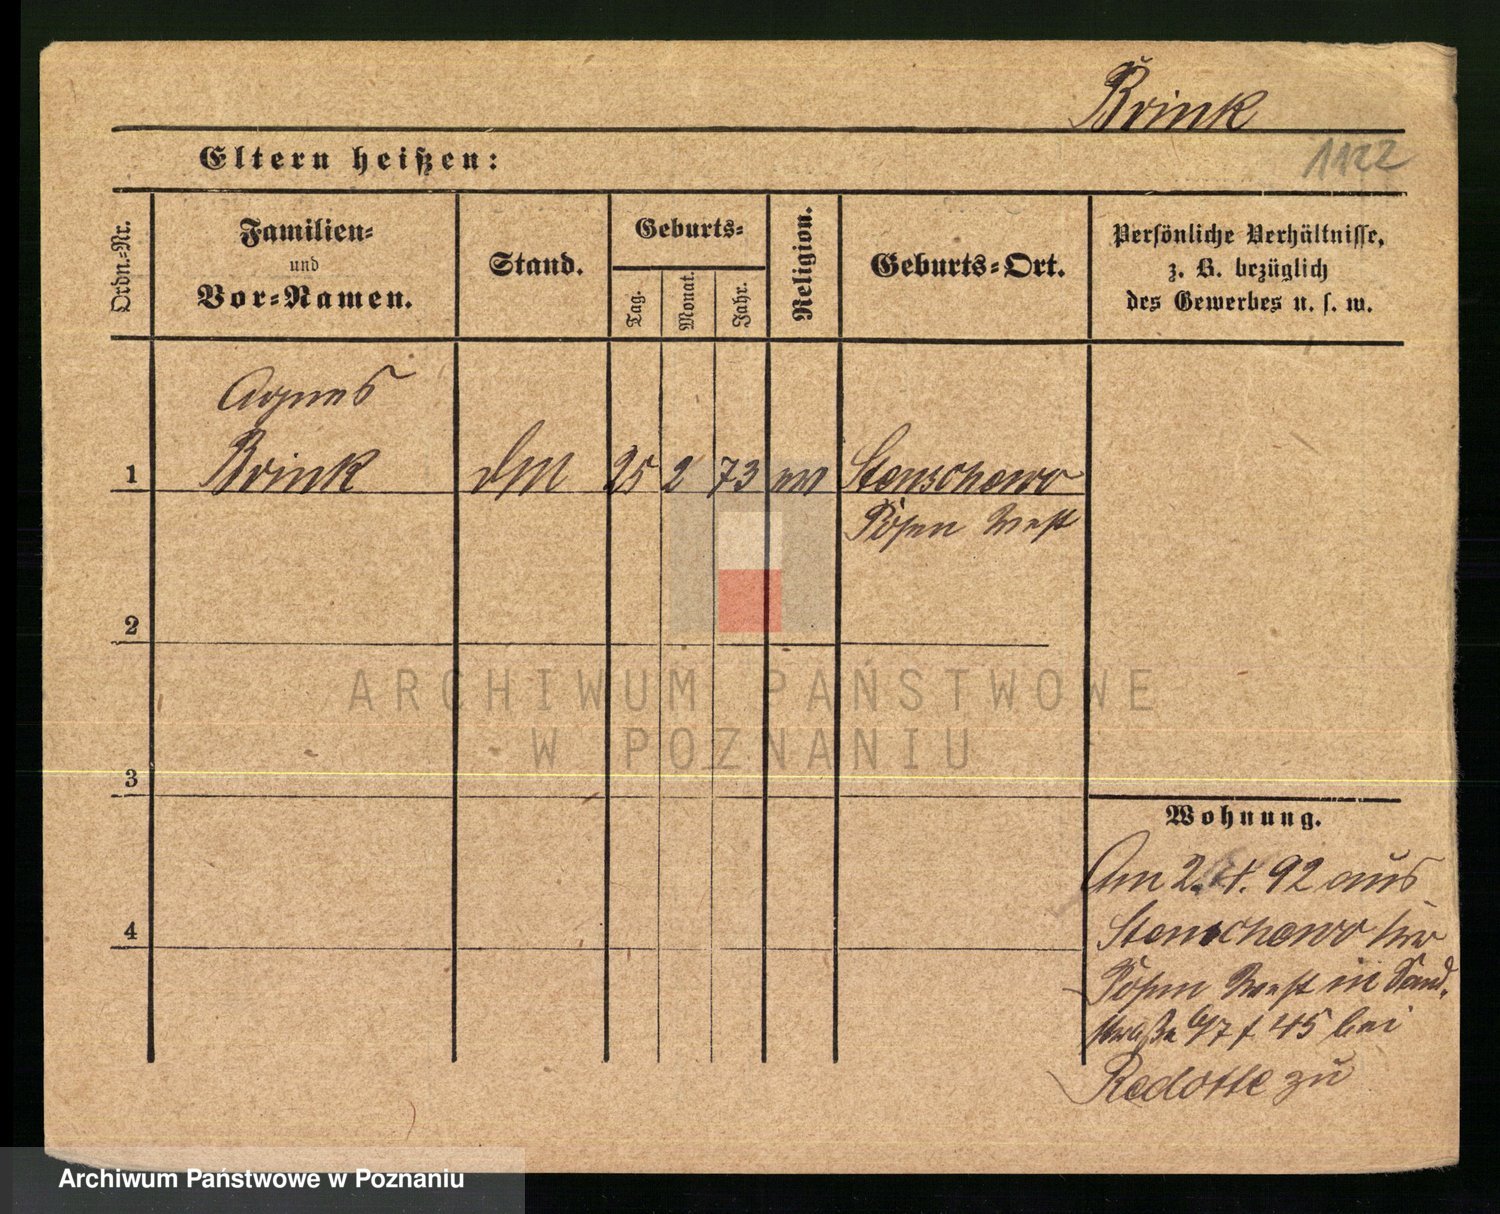 Brink
1122
Eltern heißen:
Ordn.-Nr.
Familien-
und
Vor-Namen.
Stand.
Geburts-
Tag.
Monat.
Jahr.
Religion.
Geburts-Ort.
Persönliche Verhältnisse,
z. B. bezüglich
des Gewerbes u. s. w.
Agnes
1 Brink 25 2 73 Stenschewo
Posen West
2
ARCHIWUM PAŃSTWOWE
W POZNANIU
3
Wohnung.
Am 2. 4. 92 aus
4 Stenschewo
Posen West in Sand-
straße 45 bei
Redotte zu
Archiwum Państwowe w Poznaniu